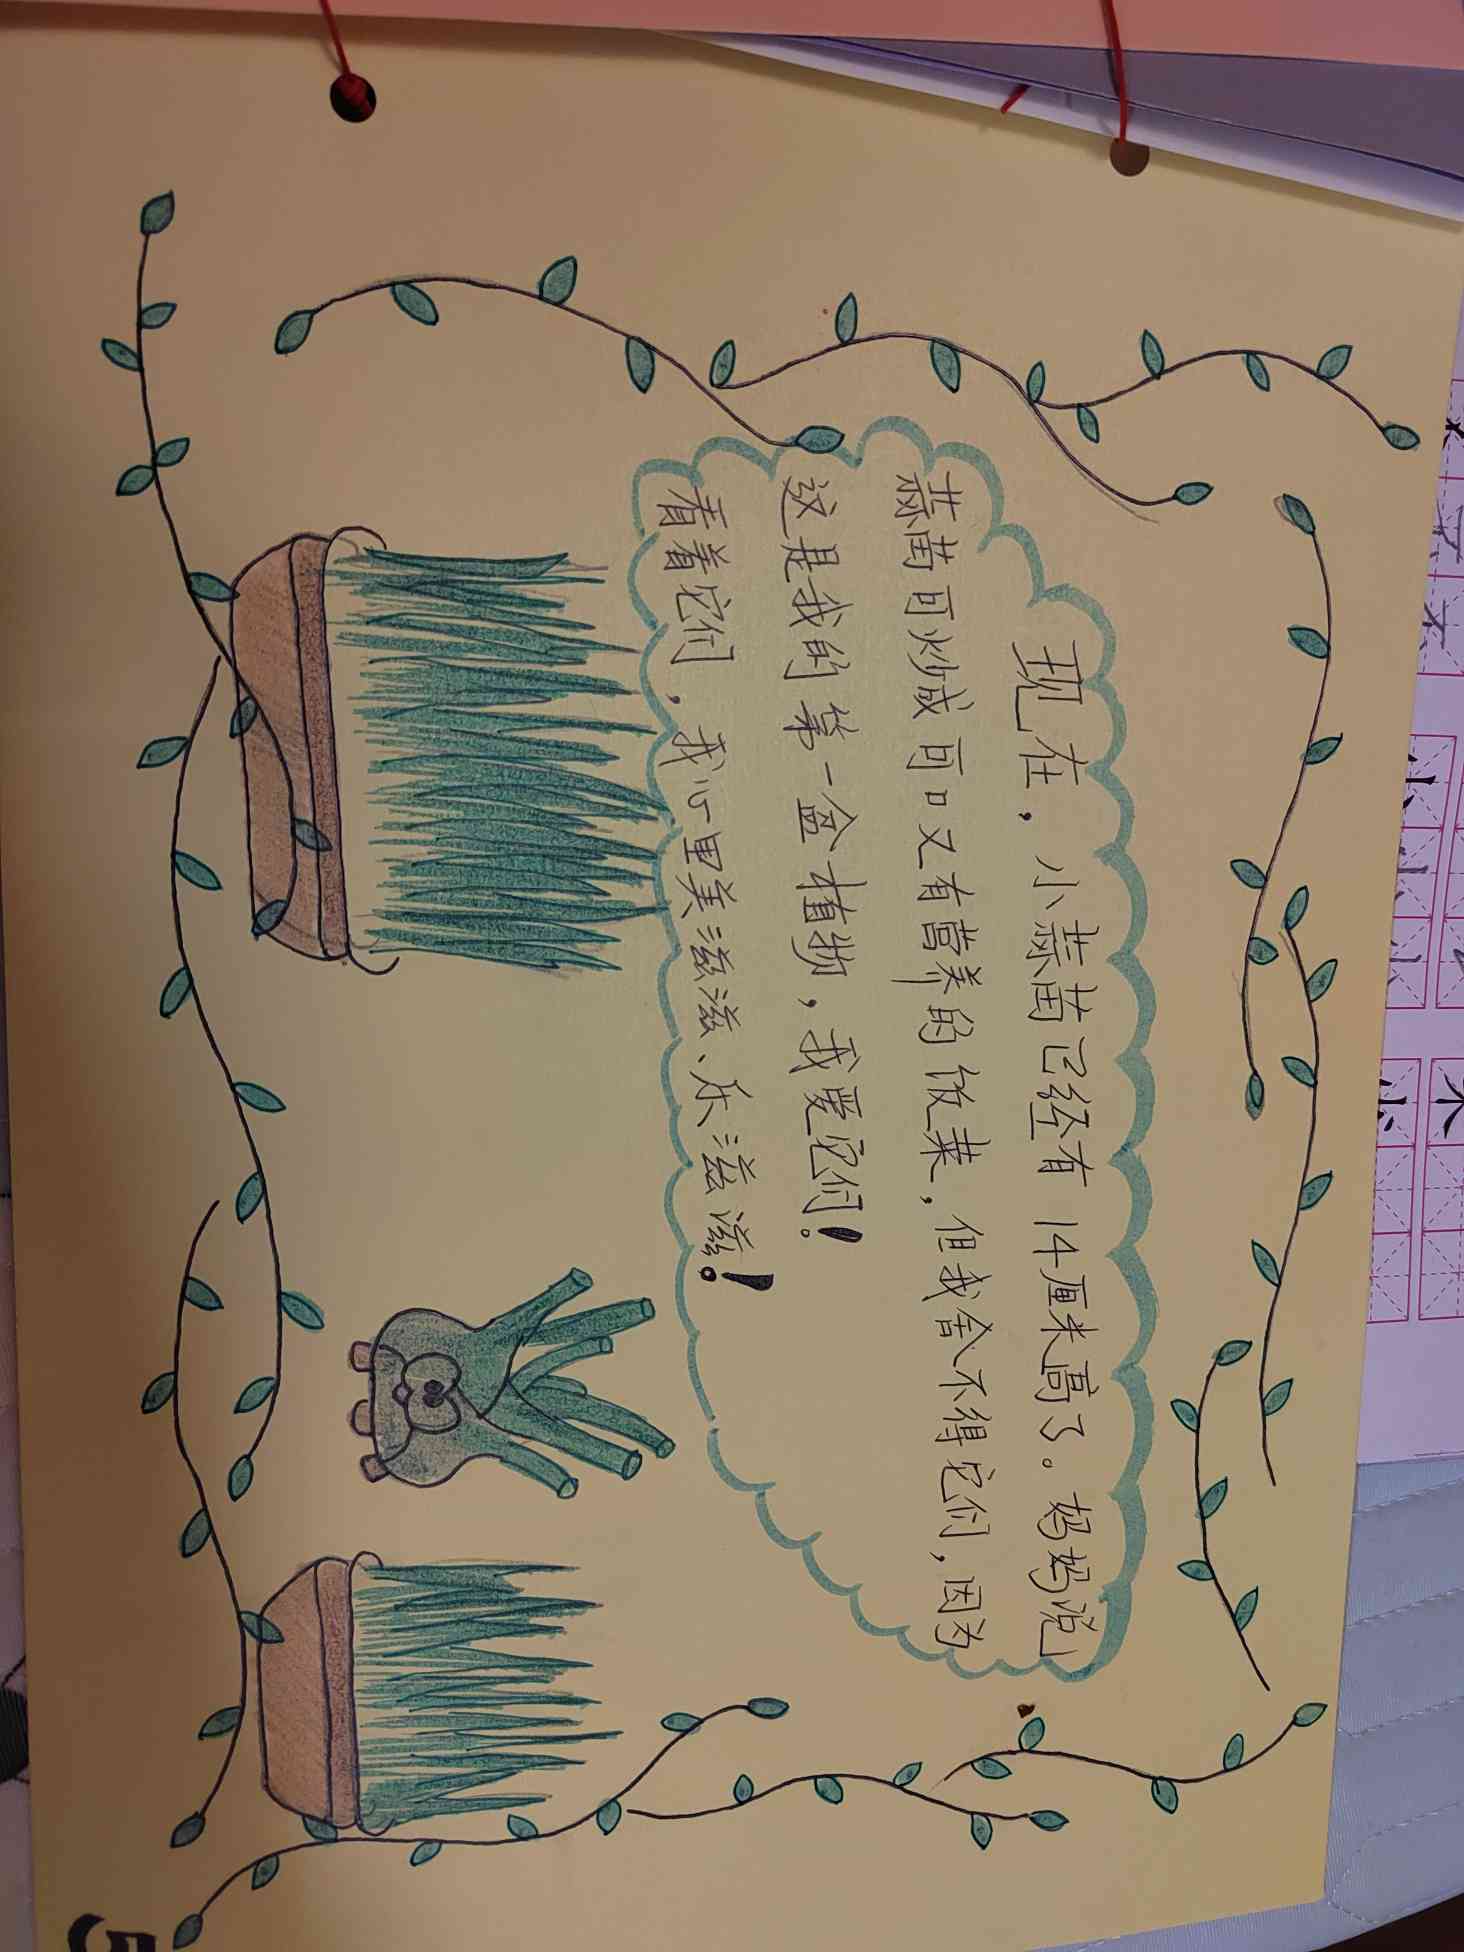 现在，小蒜苗已经有14厘米高了。妈妈说
蒜苗可炒成可口又有营养的做菜，但我舍不得它们，因为
这是我的第一盆植物，我爱它们！
看着它们，我心里美滋滋、乐滋滋！
5